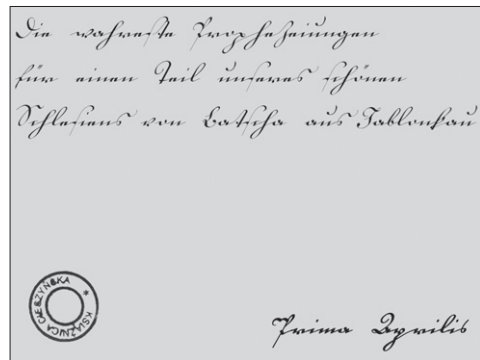 Die wahreste Prophezeiungen
für einen Teil unseres schönen
Schlesiens von Batscha aus Jablonkau
KSIĄŻNICA CIESZYŃSKA *
Prima Aprilis